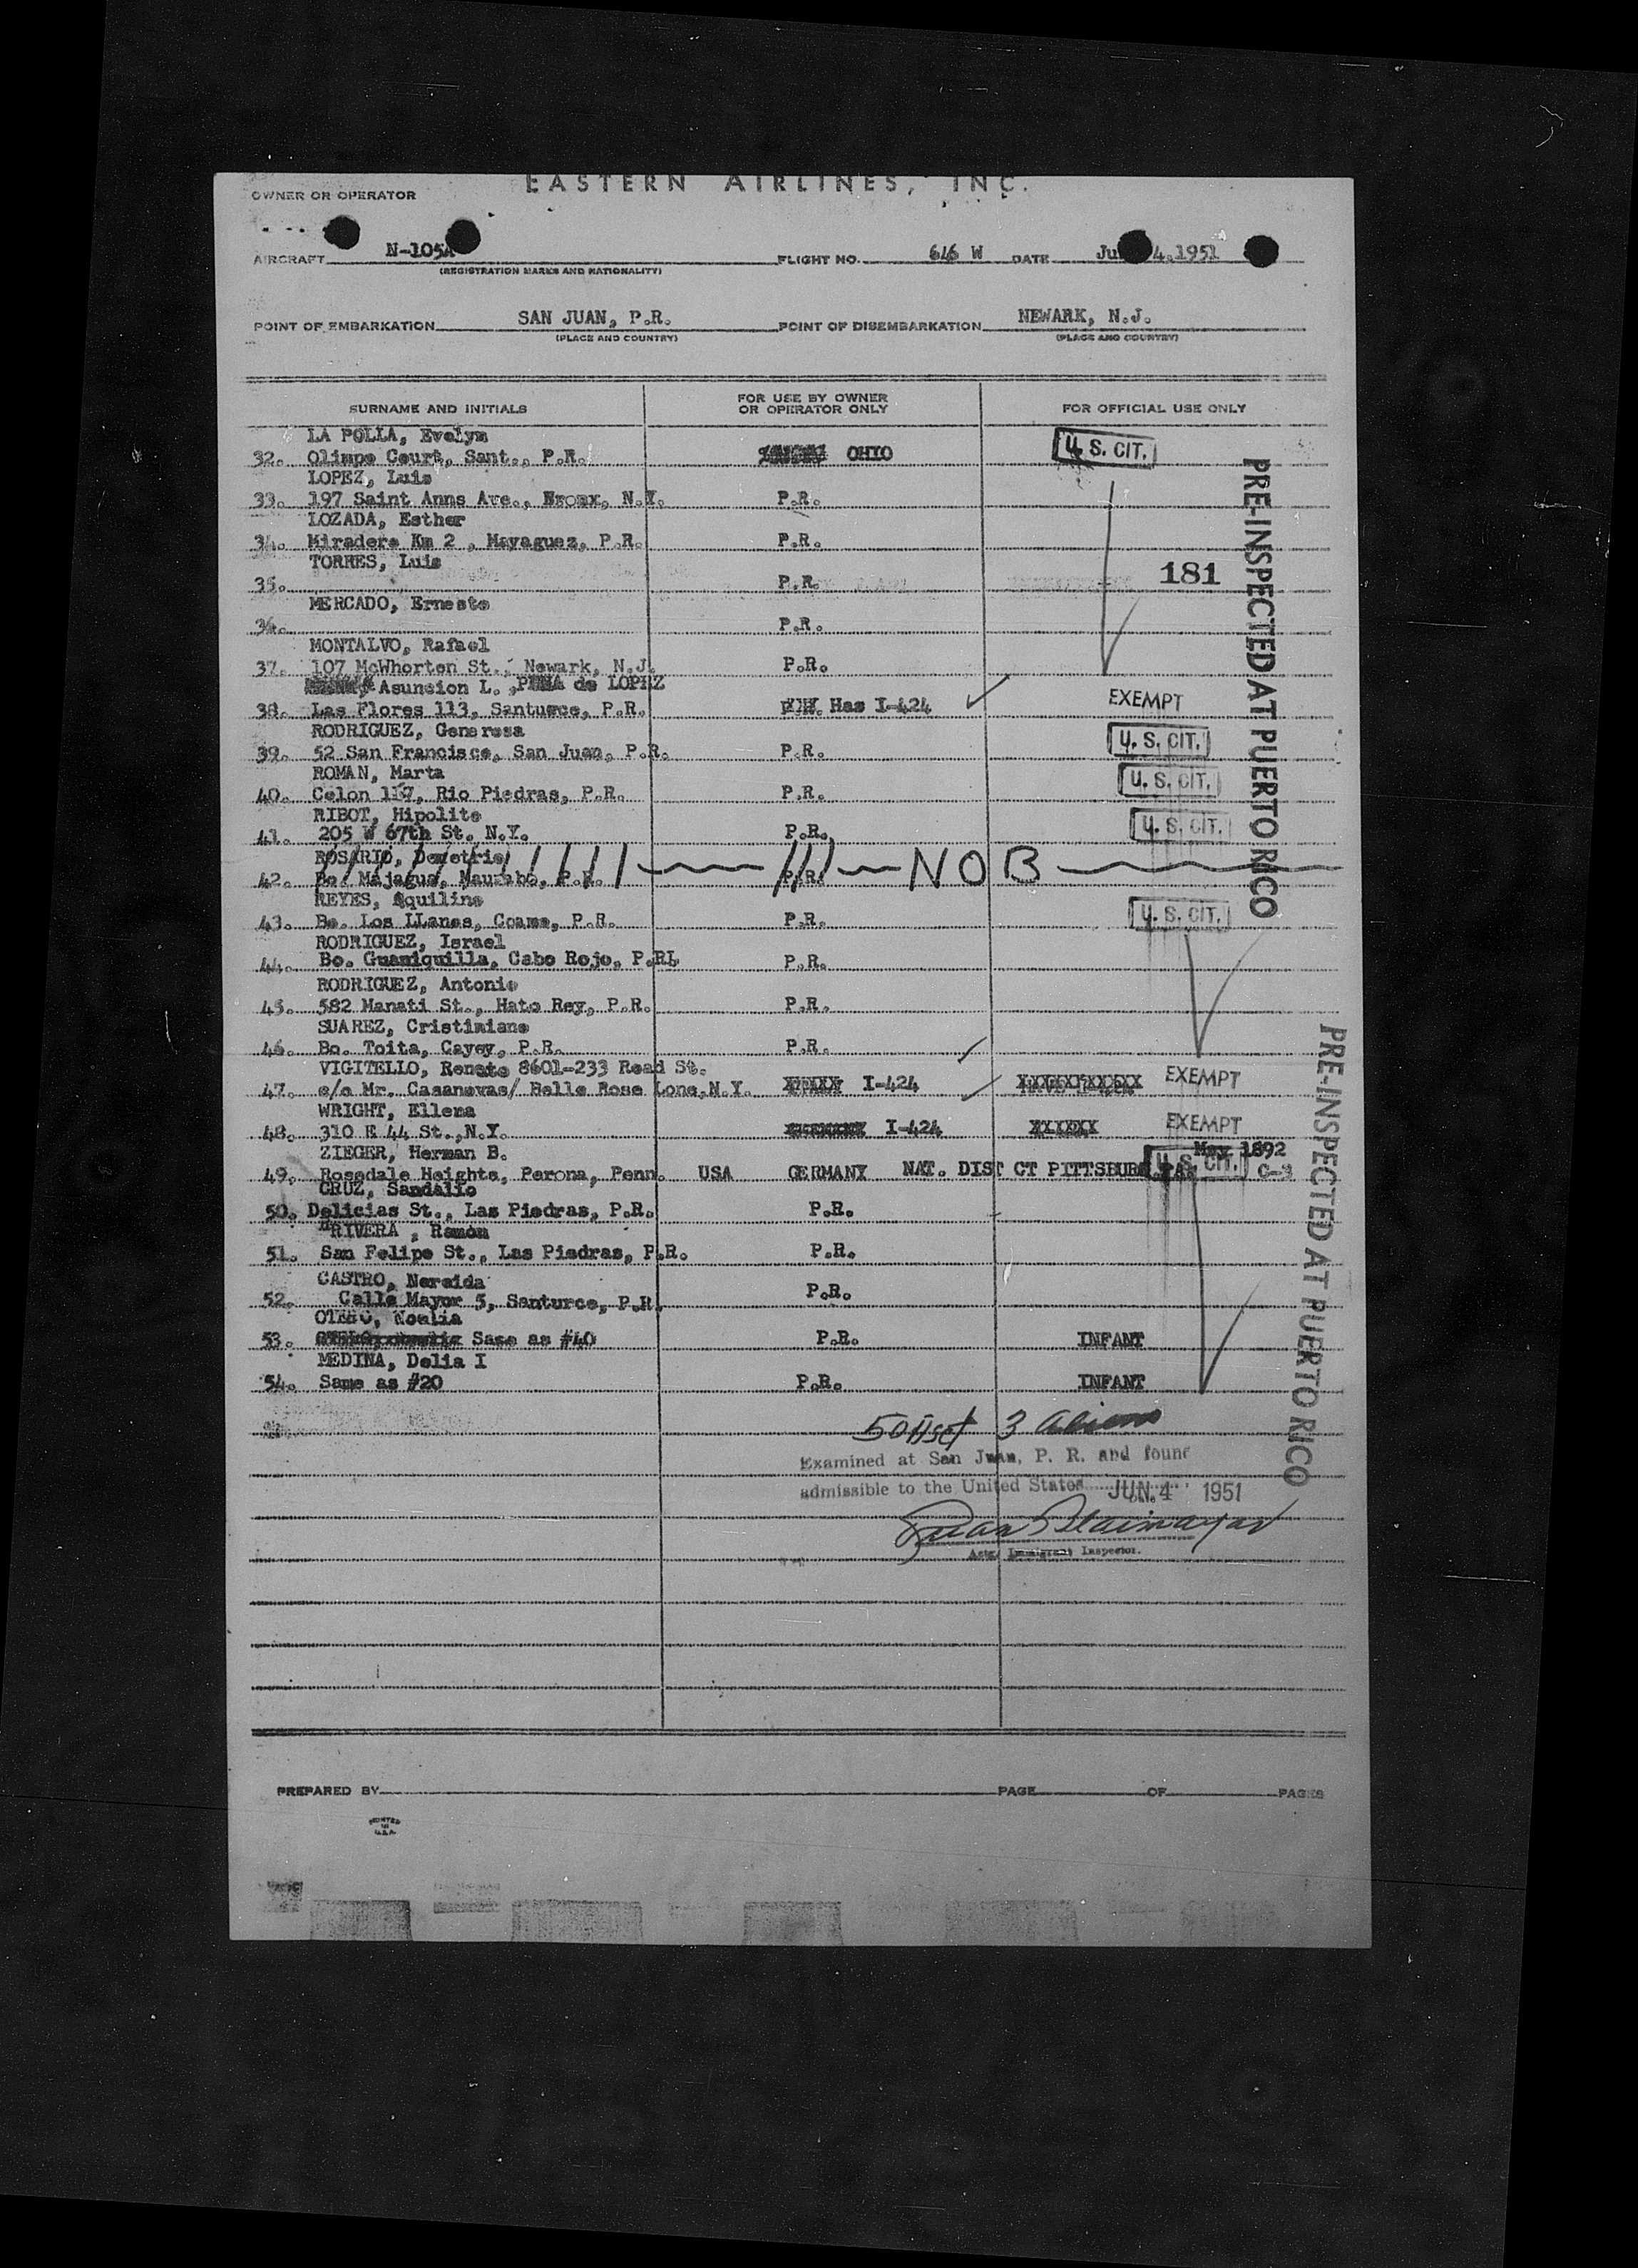 EASTERN AIRLINES, INC.
OWNER OR OPERATOR
AIRCRAFT N-105A FLIGHT NO. 646 W DATE Ju 4, 1951
(REGISTRATION MARKS AND NATIONALITY)
POINT OF EMBARKATION SAN JUAN, P.R. POINT OF DISEMBARKATION NEWARK, N.J.
(PLACE AND COUNTRY) (PLACE AND COUNTRY)
SURNAME AND INITIALS FOR USE BY OWNER OR OPERATOR ONLY FOR OFFICIAL USE ONLY
LA POLLA, Evelym
32. Olimpo Court, Sant., P.R. OHIO U. S. CIT.
LOPEZ, Luis
33. 197 Saint Anns Ave., Bronx, N.Y. P.R.
LOZADA, Esther
34. Miradero Km 2 , Mayaguez, P.R. P.R.
TORRES, Luis
35. P.R. 181
MERCADO, Ernesto
36. P.R.
MONTALVO, Rafael
37. 107 McWhorten St., Newark, N.J. P.R.
Asuncion L. , de LOPEZ
38. Las Flores 113, Santurce, P.R. Has I-424 EXEMPT
RODRIGUEZ, Generosa
39. 52 San Francisco, San Juan, P.R. P.R. U. S. CIT.
ROMAN, Marta
40. Colon 117, Rio Piedras, P.R. P.R. U. S. CIT.
RIBOT, Hipolito
41. 205 W 67th St. N.Y. P.R. U. S. CIT.
ROSARIO, Demetrio
42. Bo. Majagua, Maunabo, P.R. P.R. NOB
REYES, Aquilino
43. Bo. Los LLanos, Coamo, P.R. P.R. U. S. CIT.
RODRIGUEZ, Israel
44. Bo. Guaniquilla, Cabo Rojo, P.R. P.R.
RODRIGUEZ, Antonio
45. 582 Manati St., Hato Rey, P.R. P.R.
SUAREZ, Cristiniano
46. Bo. Toita, Cayey, P.R. P.R.
VIGITELLO, Renato 8601-233 Road St.
47. c/o Mr. Casanovas/ Belle Rose Lone,N.Y. I-424 EXEMPT
WRIGHT, Ellena
48. 310 E 44 St.,N.Y. I-424 EXEMPT
ZIEGER, Herman B. May 1892
49. Rosedale Heights, Perona, Penn. USA GERMANY NAT. DIST CT PITTSBURG PA. U. S. CIT.
CRUZ, Sandalio
50. Delicias St., Las Piedras, P.R. P.R.
RIVERA , Ramon
51. San Felipe St., Las Piedras, P.R. P.R.
CASTRO, Nereida
52. Calle Mayor 5, Santurce, P.R. P.R.
OTERO, Noelia
53. Same as #40 P.R. INFANT
MEDINA, Delia I
54. Same as #20 P.R. INFANT
3 aliens
Examined at San Juan, P. R. and found
admissible to the United States JUN. 4 1951
Actg. Immigrant Inspector.
PRE-INSPECTED AT PUERTO RICO
PRE-INSPECTED AT PUERTO RICO
PREPARED BY PAGE OF PAGES
PRINTED
IN
U.S.A.